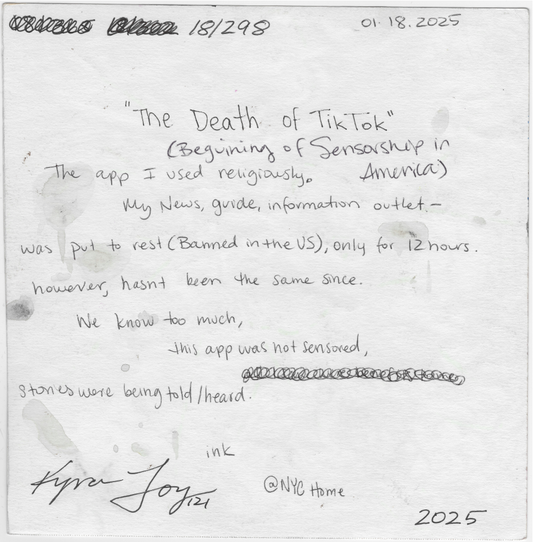 18/298 01.18.2025
"The Death of TikTok"
(Beguining of Sensorship in
The app I used religiously. America)
My News, guide, information outlet—
was put to rest (Banned in the US), only for 12 hours.
however, hasnt been the same since.
We know too much,
this app was not sensored,
stories were being told/heard.
ink
Kyra Joy
@NYC Home
2025